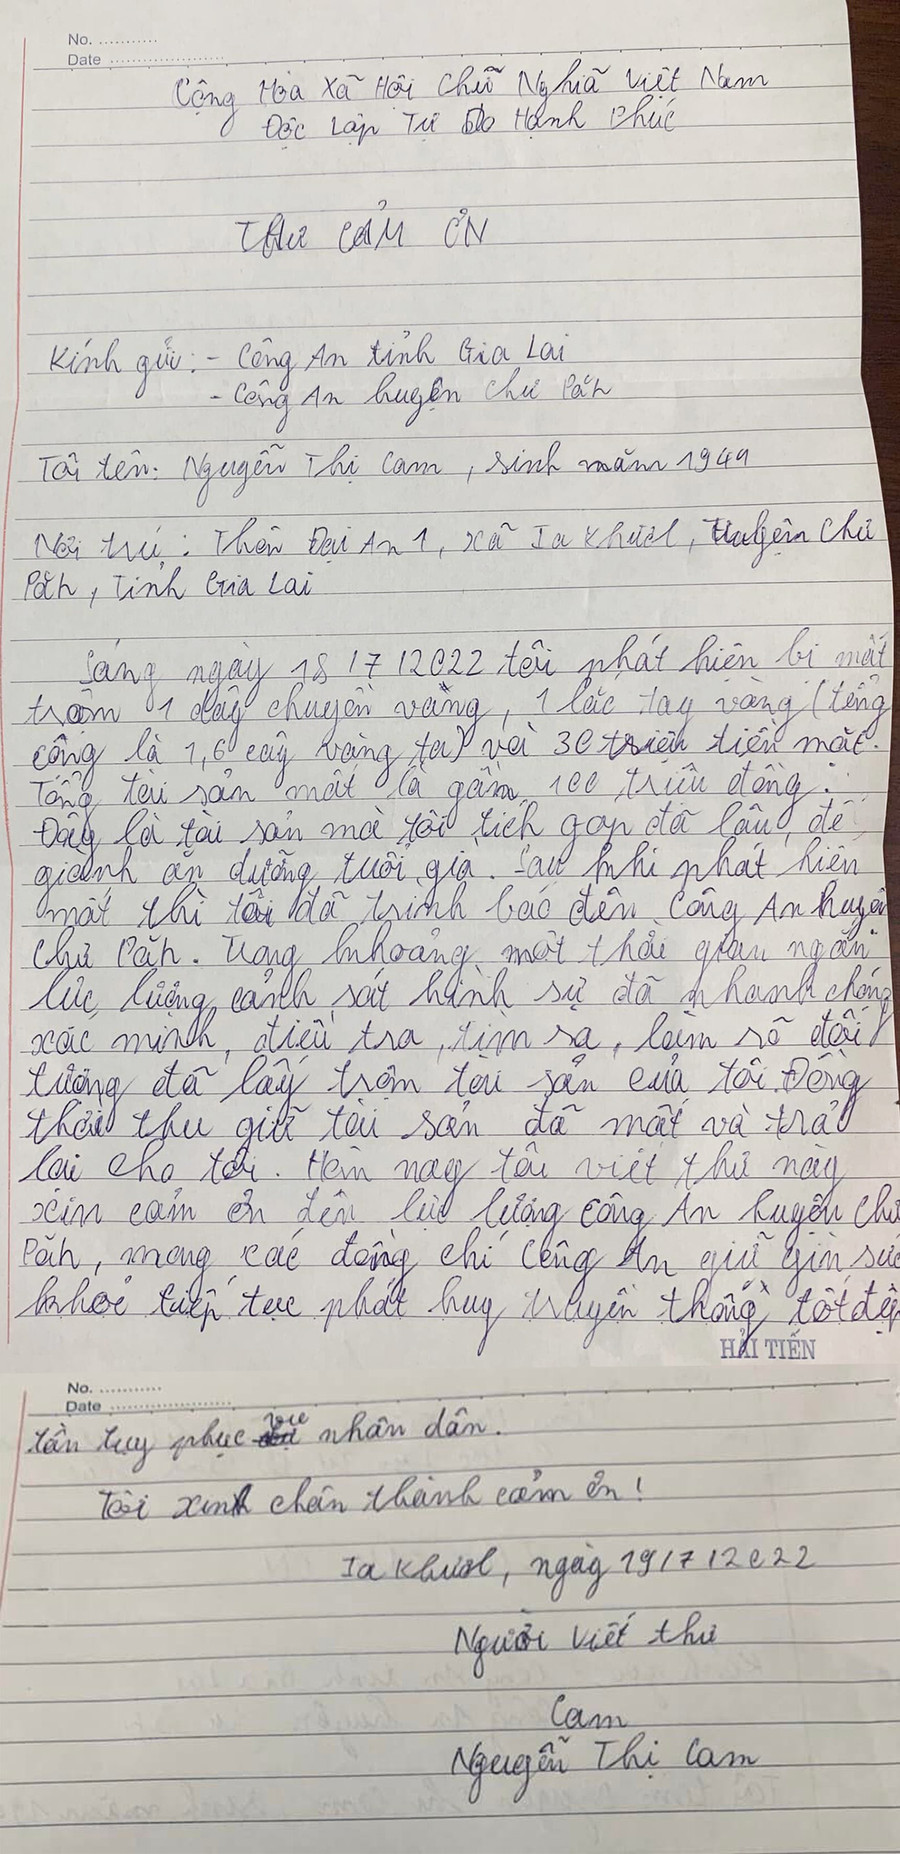 No. ...........
Date ........................
Cộng Hòa Xã Hội Chữ Nghiã Việt Nam
Độc Lập Tự Do Hạnh Phúc
THƯ CẢM ƠN
Kính gửi: - Công An tỉnh Gia Lai
- Công An huyện Chư Păh
Tôi tên: Nguyễn Thị Cam, sinh năm 1949
Nơi trú: Thôn Đại An 1, xã Ia Khươl, Huyện Chư
Păh, Tỉnh Gia Lai
Sáng ngày 18/7/2022 tôi phát hiện bị mất
trộm 1 dây chuyền vàng, 1 lắc tay vàng (tổng
cộng là 1,6 cây vàng ta) và 30 triệu tiền mặt.
Tổng tài sản mất là gần 100 triệu đồng.
Đây là tài sản mà tôi tích góp đã lâu, để
giành ăn dưỡng tuổi già. Sau khi phát hiện
mất thì tôi đã trình báo đến Công An huyện
Chư Păh. Trong khoảng một thời gian ngắn
lực lượng cảnh sát hình sự đã nhanh chóng
xác minh, điều tra, tìm ra, làm rõ đối
tượng đã lấy trộm tài sản của tôi. Đồng
thời thu giữ tài sản đã mất và trả
lại cho tôi. Hôm nay tôi viết thư này
xin cảm ơn đến lực lượng Công An huyện Chư
Păh, mong các đồng chí Công An giữ gìn sức
khoẻ tiếp tục phát huy truyền thống tốt đẹp
HẢI TIẾN
No. ...........
Date ........................
tần tụy phục vụ nhân dân.
Tôi xin chân thành cảm ơn!
Ia Khươl, ngày 19/7/2022
Người viết thư
Cam
Nguyễn Thị Cam